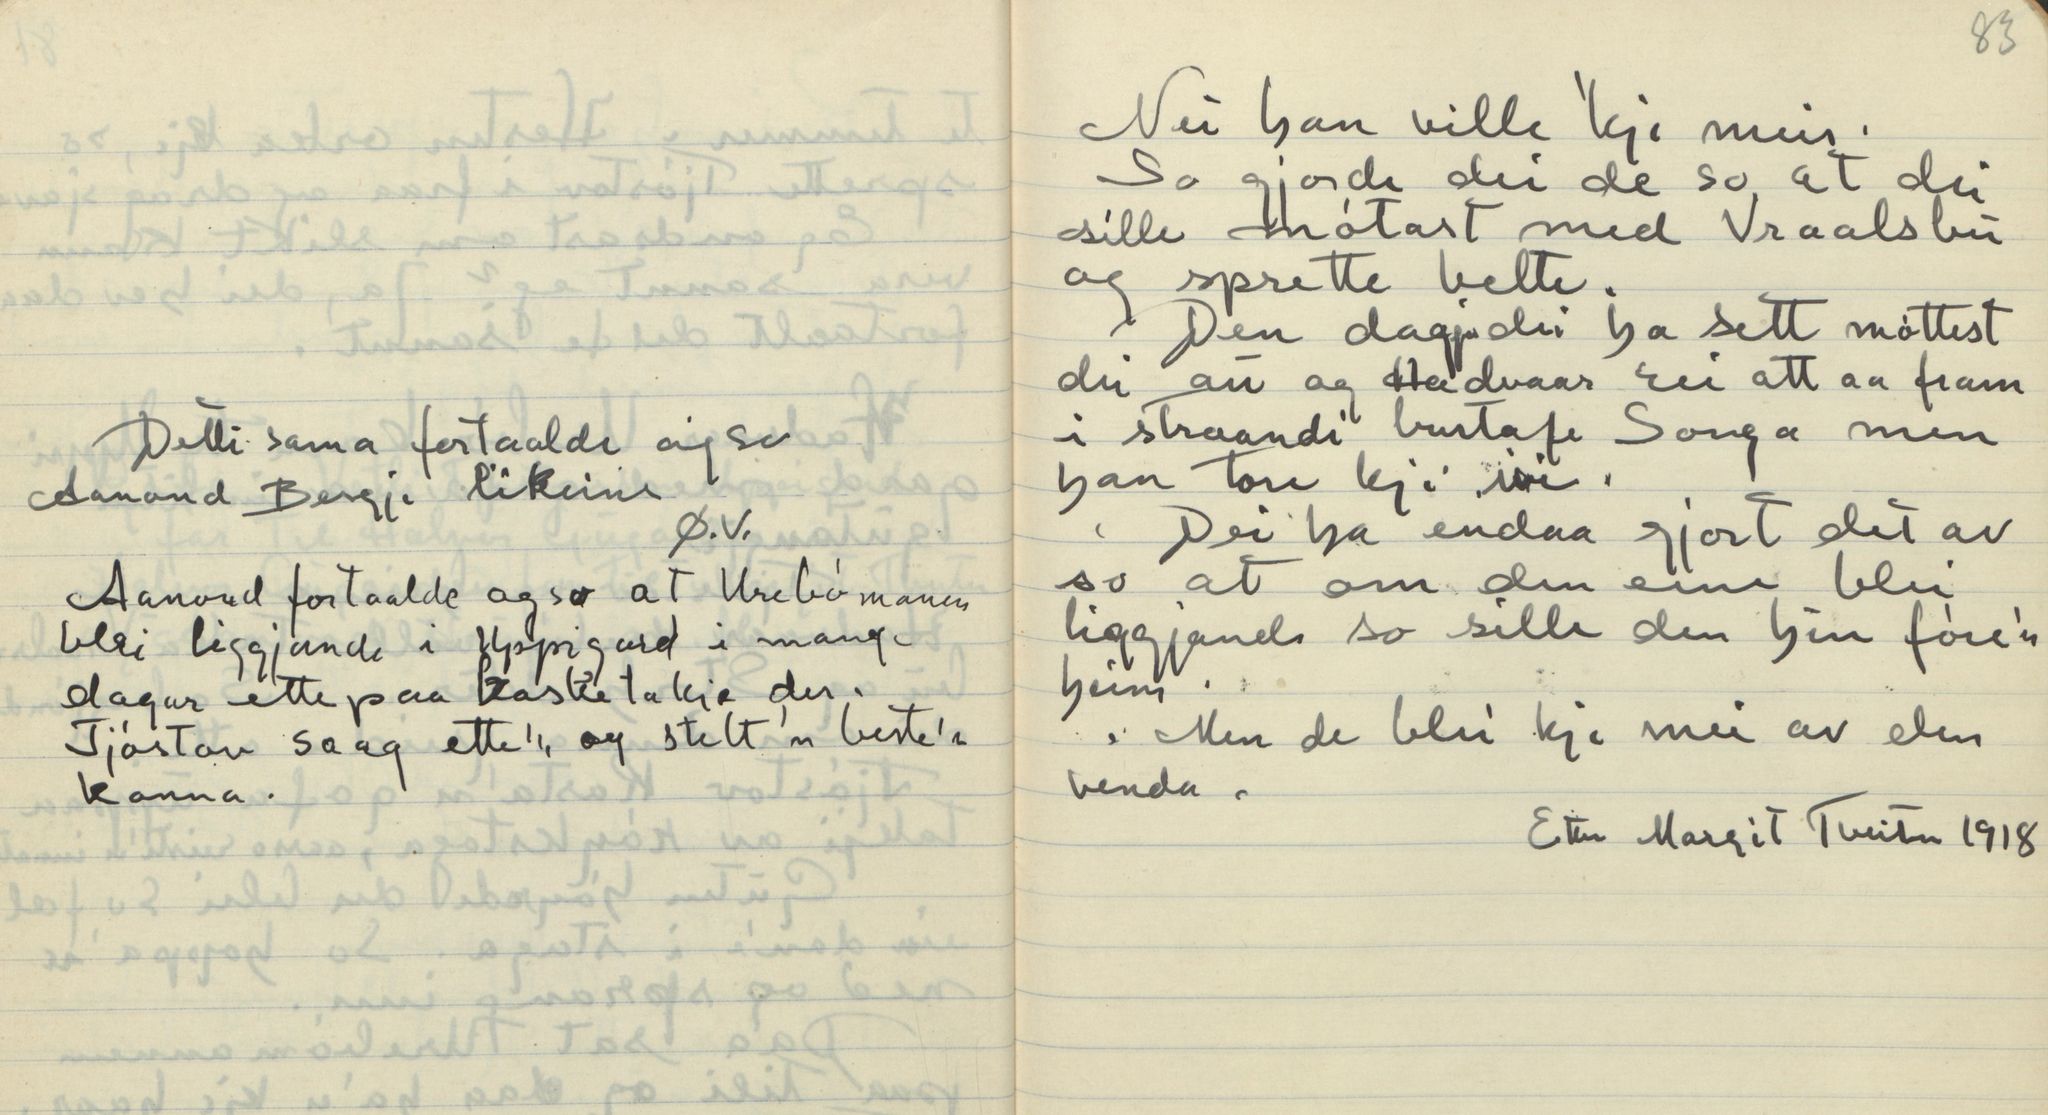 Detti sama fortaalde aigso
Aanond Bergje likeins
Ø.V.
Aanond fortaalde agso at Urebómannen
blei liggjande i Uppigard i mange
dagar ette paa kastetakje der.
Tjóstov saag ette'n og stelt'n beste'n
kanna.
83
Nei han ville 'kje meir.
So gjorde dei de so at dei
sille mótast med Vraalsbui
og sprette belte.
Den dagjen dei ha sett móttest
dei au og Hadvaar rei att aa fram
i straandi burtafe Songa men
han tore kje ivi.
Dei ha endaa gjort det av
so at om den eine blei
liggjande so sille den hin fóre'n
heim.
Men de blei kje mei av den
venda.
Ette Margit Tveiten 1918